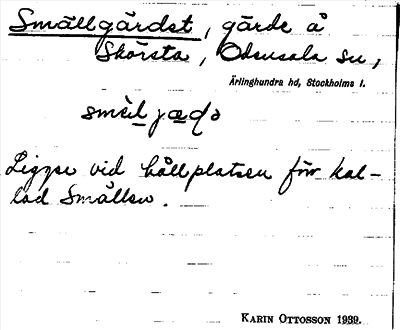 Smällgärdet, gärde å
Skörsta, Odensala sn,
Ärlinghundra hd, Stockholms l.
Ligger vid hållplatsen för kal-
lad Smällen.
KARIN OTTOSSON 1939.